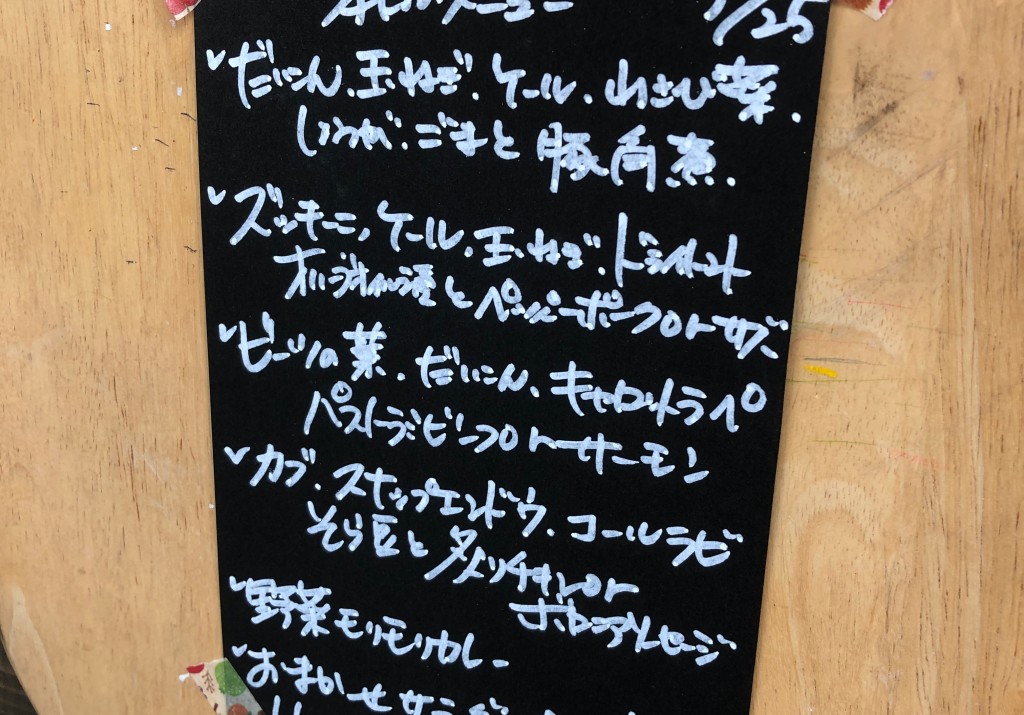 メニュー /25
✓だいこん、玉ねぎ、ケール、わさび菜、
しょうが、ごまと豚角煮、
✓ズッキーニ、ケール、玉ねぎ、ドライトマト
と ペッパーポーク or サバ
✓ビーツの葉、だいこん、キャロットラペ
パストラミビーフ or サーモン
✓カブ、スナップエンドウ、コールラビ
そら豆と炙りチキン or
ボロニアソーセージ
✓野菜モリモリカレー
✓おまかせサラダ